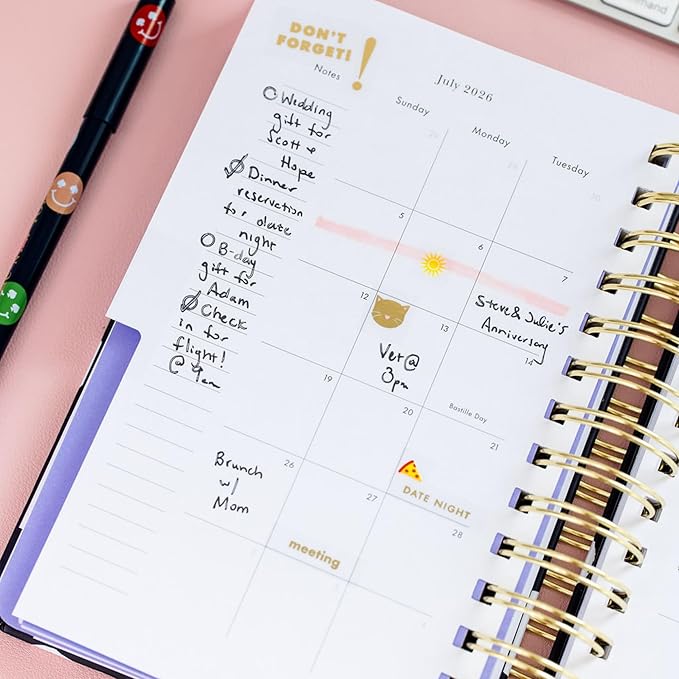 DON'T
FORGET!
Notes
Wedding
gift for
Scott &
Hope
Dinner
reservation
for date
night
B-day
gift for
Adam
Check
in for
flight!
@ 9am
July 2026
Sunday
Monday
Tuesday
5
6
7
Steve & Julie's
Anniversary
12
13
14
Vet @
3pm
Bastille Day
19
20
21
DATE NIGHT
26
27
28
Brunch
w/
Mom
meeting